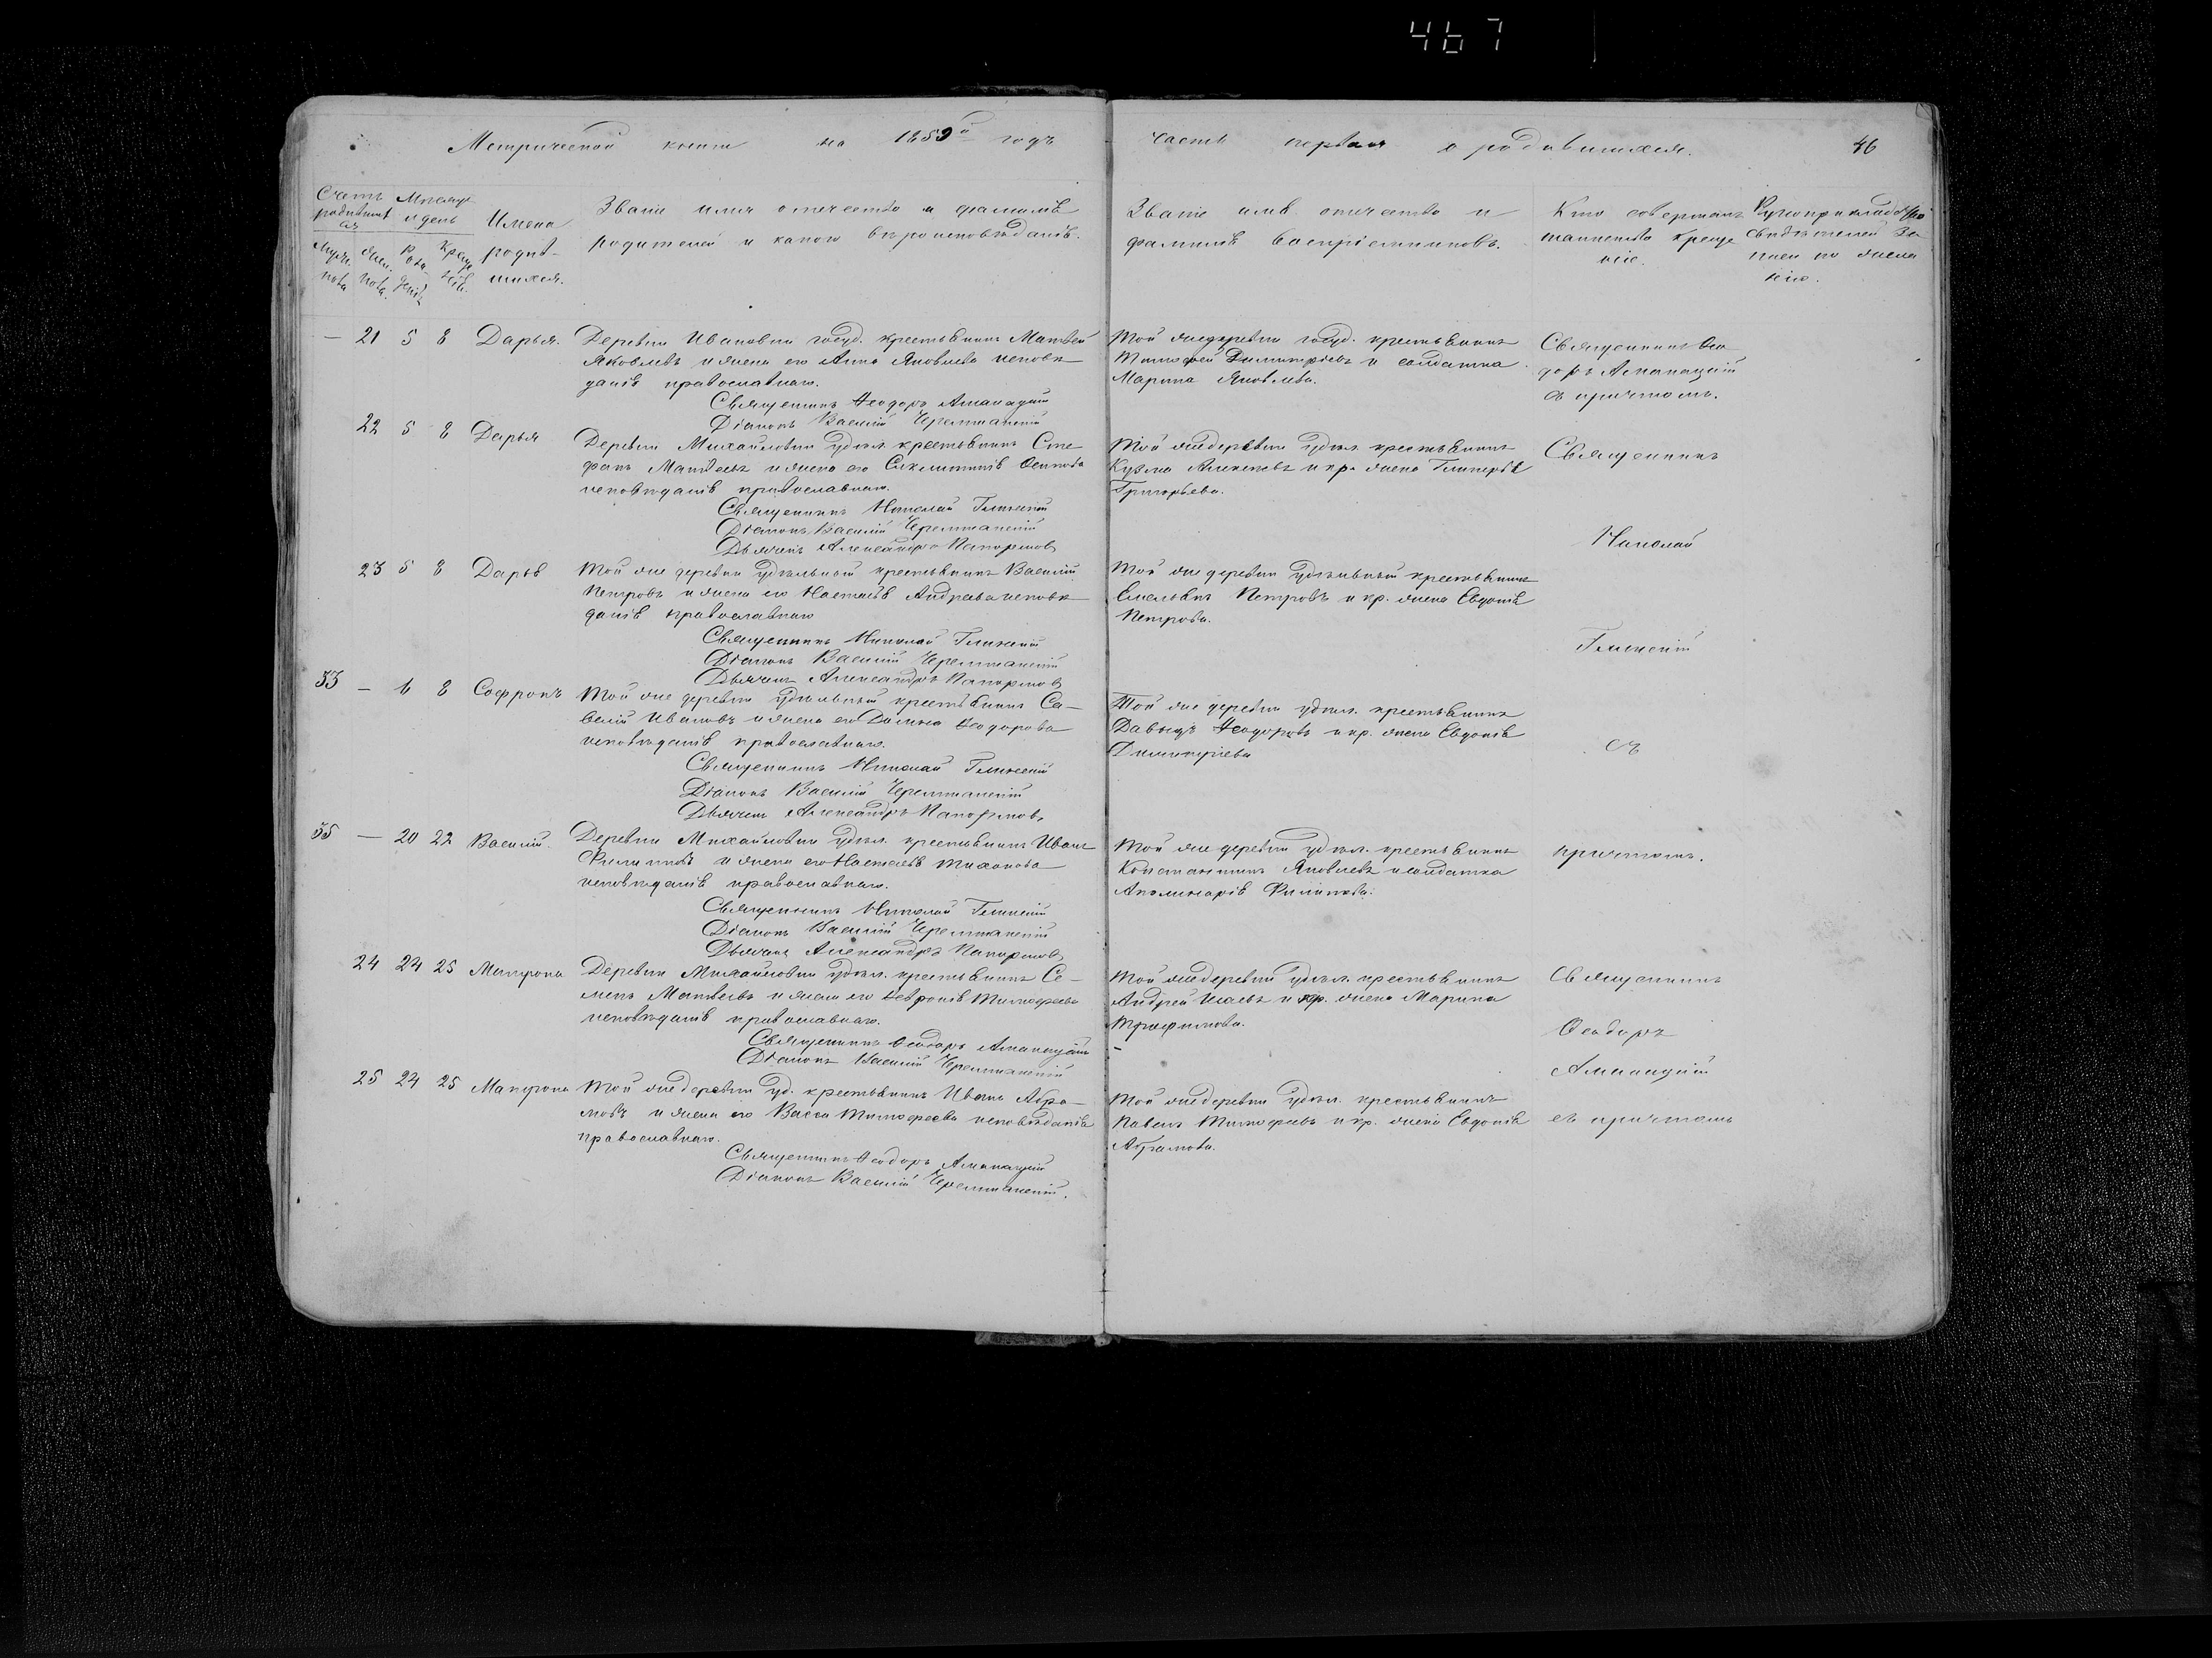 467
Метрической книги на 1859й годъ
часть первая о родившихся.
46
Счетъ родившихся
Мужеска
Женска
Месяцъ и день
Рожденія
Крещенія
Имена родившихся.
Званіе имя отчество и фамилія
родителей и какого вѣроисповѣданія.
Званіе имя отчество и
фамилія воспріемниковъ.
Кто совершалъ
таинство креще
ніе.
Рукоприкладство
свидѣтелей за
писи по жела
нію.
— 21 5 8 Дарья.
Деревни Ивановки госуд. крестьянинъ Матвей
Яковлевъ и жена его Анна Яковлева исповѣ
данія православнаго.
Священникъ Ѳеодоръ Аманацкій
Діаконъ Василій Черемшанскій
Той же деревни госуд. крестьянинъ
Тимофей Димитріевъ и солдатка
Марина Яковлева.
Священникъ Ѳео
доръ Аманацкій
съ причтомъ.
22 5 8 Дарья
Деревни Михайловки удѣл. крестьянинъ Сте
фанъ Матвеевъ и жена его Осипова
исповѣданія православнаго.
Священникъ Николай Глинскій
Діаконъ Василій Черемшанскій
Дьячекъ Александръ
Той же деревни удѣл. крестьянинъ
Кузма Алексеевъ и кр. жена Гликерія
Григорьева.
Священникъ
Николай
23 5 8 Дарья
Той же деревни удѣльный крестьянинъ Василій
Петровъ и жена его Настасія Андреева исповѣ
данія православнаго
Священникъ Николай Глинскій
Діаконъ Василій Черемшанскій
Дьячекъ Александръ
Той же деревни удѣльный крестьянинъ
Емельянъ Петровъ и кр. жена Евдокія
Петрова.
Глинскій
33 — 6 8 Софронъ
Той же деревни удѣльный крестьянинъ Са-
велій Ивановъ и жена его Домна Ѳеодорова
исповѣданія православнаго.
Священникъ Николай Глинскій
Діаконъ Василій Черемшанскій
Дьячекъ Александръ
Той же деревни удѣл. крестьянинъ
Давыдъ Ѳеодоровъ и кр. жена Евдокія
Димитріева
съ
35 — 20 22 Василій.
Деревни Михайловки удѣл. крестьянинъ Иванъ
Филиповъ и жена его Настасія Тихонова
исповѣданія православнаго.
Священникъ Николай Глинскій
Діаконъ Василій Черемшанскій
Дьячекъ Александръ
Той же деревни удѣл. крестьянинъ
Константинъ Яковлевъ и солдатка
Аполинарія Филипова.
причтомъ.
24 24 25 Матрона
Деревни Михайловки удѣл. крестьянинъ Се-
менъ Матвеевъ и жена его Ѳевронія Тимофеева
исповѣданія православнаго.
Священникъ Ѳеодоръ Аманацкій
Діаконъ Василій Черемшанскій
Той же деревни удѣл. крестьянинъ
Андрей Исаевъ и кр. жена Марина
Трофимова.
Священникъ
Ѳеодоръ
Аманацкій
25 24 25 Матрона
Той же деревни уд. крестьянинъ Иванъ Абра-
мовъ и жена его Васса Тимофеева исповѣданія
православнаго.
Священникъ Ѳеодоръ Аманацкій
Діаконъ Василій Черемшанскій.
Той же деревни удѣл. крестьянинъ
Павелъ Тимофеевъ и кр. жена Евдокія
Абрамова.
съ причтомъ